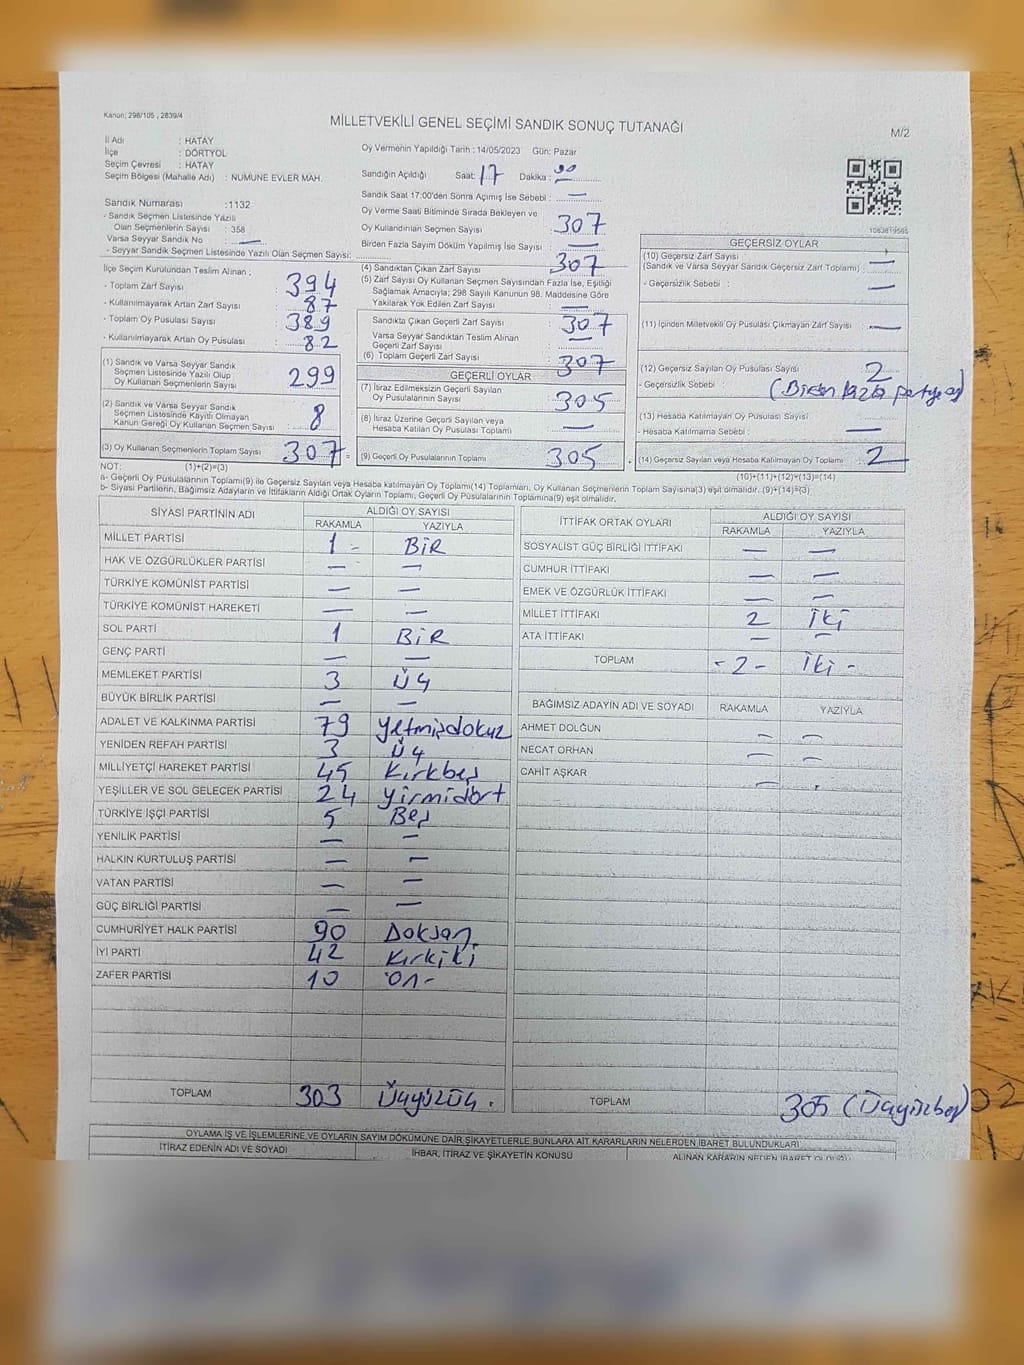 Kanun; 298/105 , 2839/4
MİLLETVEKİLİ GENEL SEÇİMİ SANDIK SONUÇ TUTANAĞI
M/2
İl Adı : HATAY
İlçe : DÖRTYOL
Seçim Çevresi : HATAY
Seçim Bölgesi (Mahalle Adı) : NUMUNE EVLER MAH.
Sandık Numarası :1132
- Sandık Seçmen Listesinde Yazılı
Olan Seçmenlerin Sayısı : 358
Varsa Seyyar Sandık No : —
- Seyyar Sandık Seçmen Listesinde Yazılı Olan Seçmen Sayısı:
Oy Vermenin Yapıldığı Tarih : 14/05/2023 Gün: Pazar
Sandığın Açıldığı Saat: 17 Dakika :
Sandık Saat 17:00'den Sonra Açımış İse Sebebi : —
Oy Verme Saati Bitiminde Sırada Bekleyen ve
Oy Kullandırılan Seçmen Sayısı 307
Birden Fazla Sayım Döküm Yapılmış İse Sayısı : —
1083819565
İlçe Seçim Kurulundan Teslim Alınan ;
- Toplam Zarf Sayısı : 394
- Kullanılmayarak Artan Zarf Sayısı : 87
- Toplam Oy Pusulası Sayısı : 389
- Kullanılmayarak Artan Oy Pusulası : 82
(1) Sandık ve Varsa Seyyar Sandık
Seçmen Listesinde Yazılı Olup
Oy Kullanan Seçmenlerin Sayısı 299
(2) Sandık ve Varsa Seyyar Sandık
Seçmen Listesinde Kayıtlı Olmayan
Kanun Gereği Oy Kullanan Seçmen Sayısı : 8
(3) Oy Kullanan Seçmenlerin Toplam Sayısı : 307 =
(4) Sandıktan Çıkan Zarf Sayısı 307
(5) Zarf Sayısı Oy Kullanan Seçmen Sayısından Fazla İse, Eşitliği
Sağlamak Amacıyla; 298 Sayılı Kanunun 98. Maddesine Göre
Yakılarak Yok Edilen Zarf Sayısı : —
Sandıkta Çıkan Geçerli Zarf Sayısı : 307
Varsa Seyyar Sandıktan Teslim Alınan
Geçerli Zarf Sayısı : —
(6) Toplam Geçerli Zarf Sayısı : 307
GEÇERLİ OYLAR
(7) İtiraz Edilmeksizin Geçerli Sayılan
Oy Pusulalarının Sayısı : 305
(8) İtiraz Üzerine Geçerli Sayılan veya
Hesaba Katılan Oy Pusulası Toplamı : —
(9) Geçerli Oy Pusulalarının Toplamı : 305
GEÇERSİZ OYLAR
(10) Geçersiz Zarf Sayısı : —
(Sandık ve Varsa Seyyar Sandık Geçersiz Zarf Toplamı) :
- Geçersizlik Sebebi : —
(11) İçinden Milletvekili Oy Pusulası Çıkmayan Zarf Sayısı : —
(12) Geçersiz Sayılan Oy Pusulası Sayısı : 2
- Geçersizlik Sebebi : (Birden fazla partiye oy)
(13) Hesaba Katılmayan Oy Pusulası Sayısı
- Hesaba Katılmama Sebebi : —
(14) Geçersiz Sayılan veya Hesaba Katılmayan Oy Toplamı : 2
NOT: (1)+(2)=(3)
(10)+(11)+(12)+(13)=(14)
a- Geçerli Oy Pusulalarının Toplamı(9) ile Geçersiz Sayılan veya Hesaba katılmayan Oy Toplamı(14) Toplamları, Oy Kullanan Seçmenlerin Toplam Sayısına(3) eşit olmalıdır. (9)+(14)=(3)
b- Siyasi Partilerin, Bağımsız Adayların ve İttifakların Aldığı Ortak Oyların Toplamı; Geçerli Oy Pusulalarının Toplamına(9) eşit olmalıdır.
SİYASİ PARTİNİN ADI ALDIĞI OY SAYISI
RAKAMLA YAZIYLA
MİLLET PARTİSİ 1 - BİR
HAK VE ÖZGÜRLÜKLER PARTİSİ — —
TÜRKİYE KOMÜNİST PARTİSİ — —
TÜRKİYE KOMÜNİST HAREKETİ — —
SOL PARTİ 1 BİR
GENÇ PARTİ — —
MEMLEKET PARTİSİ 3 Üç
BÜYÜK BİRLİK PARTİSİ — —
ADALET VE KALKINMA PARTİSİ 79 Yetmişdokuz
YENİDEN REFAH PARTİSİ 3 Üç
MİLLİYETÇİ HAREKET PARTİSİ 45 Kırkbeş
YEŞİLLER VE SOL GELECEK PARTİSİ 24 Yirmidört
TÜRKİYE İŞÇİ PARTİSİ 5 Beş
YENİLİK PARTİSİ — —
HALKIN KURTULUŞ PARTİSİ — —
VATAN PARTİSİ — —
GÜÇ BİRLİĞİ PARTİSİ — —
CUMHURİYET HALK PARTİSİ 90 Doksan
İYİ PARTİ 42 Kırkiki
ZAFER PARTİSİ 10 On-
TOPLAM 303 Üçyüzüç.
İTTİFAK ORTAK OYLARI ALDIĞI OY SAYISI
RAKAMLA YAZIYLA
SOSYALİST GÜÇ BİRLİĞİ İTTİFAKI — —
CUMHUR İTTİFAKI — —
EMEK VE ÖZGÜRLÜK İTTİFAKI — —
MİLLET İTTİFAKI 2 İki
ATA İTTİFAKI — —
TOPLAM - 2 - İki -
BAĞIMSIZ ADAYIN ADI VE SOYADI RAKAMLA YAZIYLA
AHMET DOLĞUN — —
NECAT ORHAN — —
CAHİT AŞKAR —
TOPLAM 305 (Üçyüzbeş)
OYLAMA İŞ VE İŞLEMLERİNE VE OYLARIN SAYIM DÖKÜMÜNE DAİR ŞİKAYETLERLE BUNLARA AİT KARARLARIN NELERDEN İBARET BULUNDUKLARI
İTİRAZ EDENİN ADI VE SOYADI İHBAR, İTİRAZ VE ŞİKAYETİN KONUSU ALINAN KARARIN NEDEN İBARET OLDUĞU